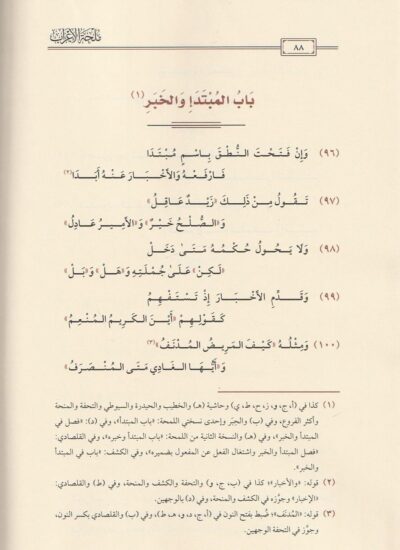 مُلْحَةُ الإِعْرَابِ
٨٨
بَابُ المُبْتَدَإِ وَالخَبَرِ (١)
(٩٦) وَإِنْ فَتَحْتَ النُّطْقَ بِاسْمٍ مُبْتَدَا
فَارْفَعْهُ وَالأَخْبَارَ عَنْهُ أَبَدَا (٢)
(٩٧) تَقُولُ مِنْ ذَلِكَ «زَيْدٌ عَاقِلُ»
وَ«الصُّلْحُ خَيْرٌ» وَ«الأَمِيرُ عَادِلُ»
(٩٨) وَلَا يَحُولُ حُكْمُهُ مَتَىٰ دَخَلْ
«لَكِنْ» عَلَىٰ جُمْلَتِهِ وَ«هَلْ» وَ«بَلْ»
(٩٩) وَقَدِّمِ الأَخْبَارَ إِذْ تَسْتَفْهِمُ
كَقَوْلِهِمْ «أَيْنَ الكَرِيمُ المُنْعِمُ»
(١٠٠) وَمِثْلُهُ «كَيْفَ المَرِيضُ المُدْنَفُ» (٣)
وَ«أَيُّهَا الغَادِي مَتَى المُنْصَرَفُ»
(١) كذا في (أ، ج، و، ز، ح، ط، ي) وحاشية (هـ) والخطيب والحيدرة والسيوطي والتحفة والمنحة
وأكثر الفروع، وفي (ب) والجبَر وإحدى نسختي اللمحة: «باب المبتدأ»، وفي (د): «فصل في
المبتدأ والخبر»، وفي (هـ) والنسخة الثانية من اللمحة: «باب المبتدأ وخبره»، وفي القلصادي:
«فصل المبتدأ والخبر واشتغال الفعل عن المفعول بضميره»، وفي الكشف: «باب في المبتدأ
والخبر».
(٢) قوله: «والأخبار» كذا في (ب، ج، و) والتحفة والكشف والمنحة، وفي (ط) والقلصادي:
«الإخبار» وجوَّزه في الكشف والمنحة، وفي (د) بالوجهين.
(٣) قوله: «المُدْنَف» ضُبط بفتح النون في (أ، ج، د، و، هـ، ط)، وفي (ب) والقلصادي بكسر النون،
وجوَّز في التحفة الوجهين.